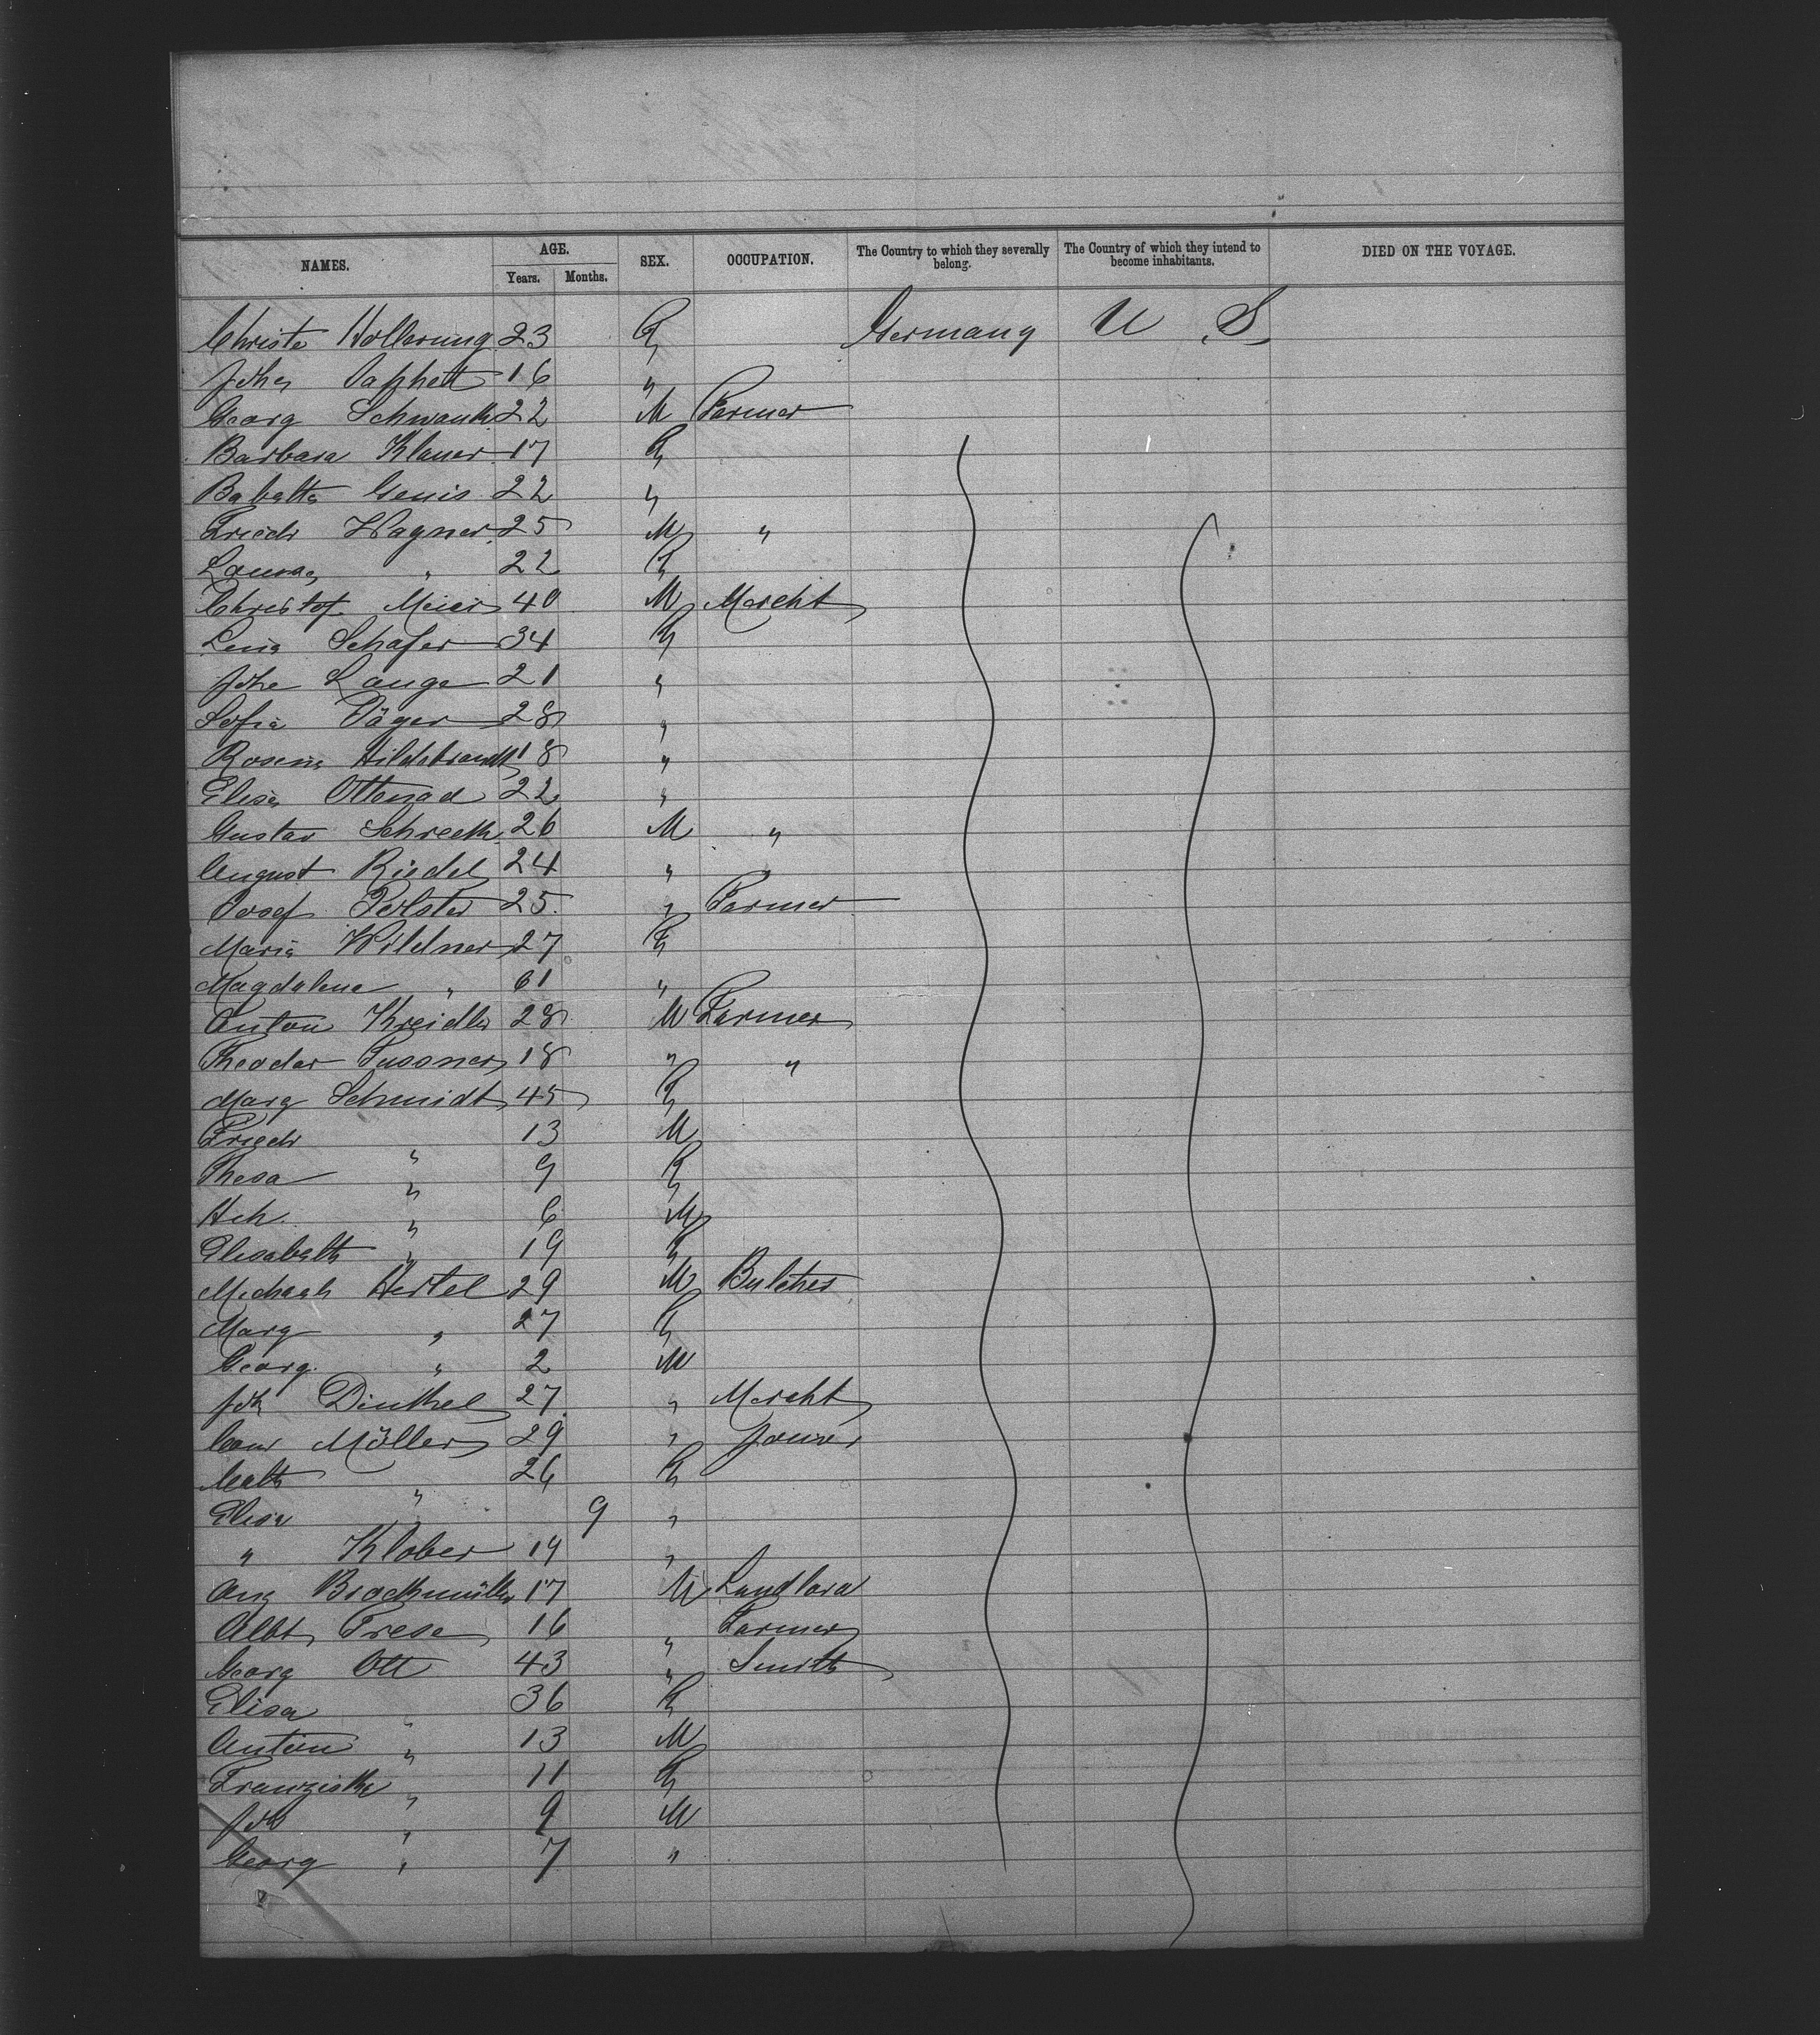 NAMES. AGE. Years. Months. SEX. OCCUPATION. The Country to which they severally belong. The Country of which they intend to become inhabitants. DIED ON THE VOYAGE.
Christe Hollerung 23 F Germany U. S.
Johe 16 "
Georg Schwank 22 M Farmer
Barbara Klauer 17 F
Babette Genis 22 "
Friedr Wagner 25 M "
Laura " 22 F
Christof Meier 40 M Mercht
Lena Schafer 34 F
Johe Lange 21 "
Sofia Jäger 28 "
Rosina Hildebrandt 18 "
Elisa Ottenad 22 "
Gustav Schreck 26 M "
August Riedel 24 " "
Josef Polster 25 " Farmer
Maria Wildner 27 F
Magdalene " 61 "
Anton Kreidler 28 M Farmer
Theodor 18 " "
Marg Schmidt 45 F
Friedr " 13 M
Thesa " 9 F
Hch " 6 M
Elisabeth " 19 F
Michael Hertel 29 M Butcher
Marg " 27 F
Georg " 2 M
Joh Dinkel 27 " Mercht
Conr Möller 29 " Joiner
Cath " 26 F
Elisa " 9 "
" Klober 19 "
Aug Brockmüller 17 M Landlord
Albt Frese 16 " Farmer
Georg Ott 43 " Smith
Elisa " 36 F
Anton " 13 M
Franziska " 11 F
Joh " 9 M
Georg " 7 "